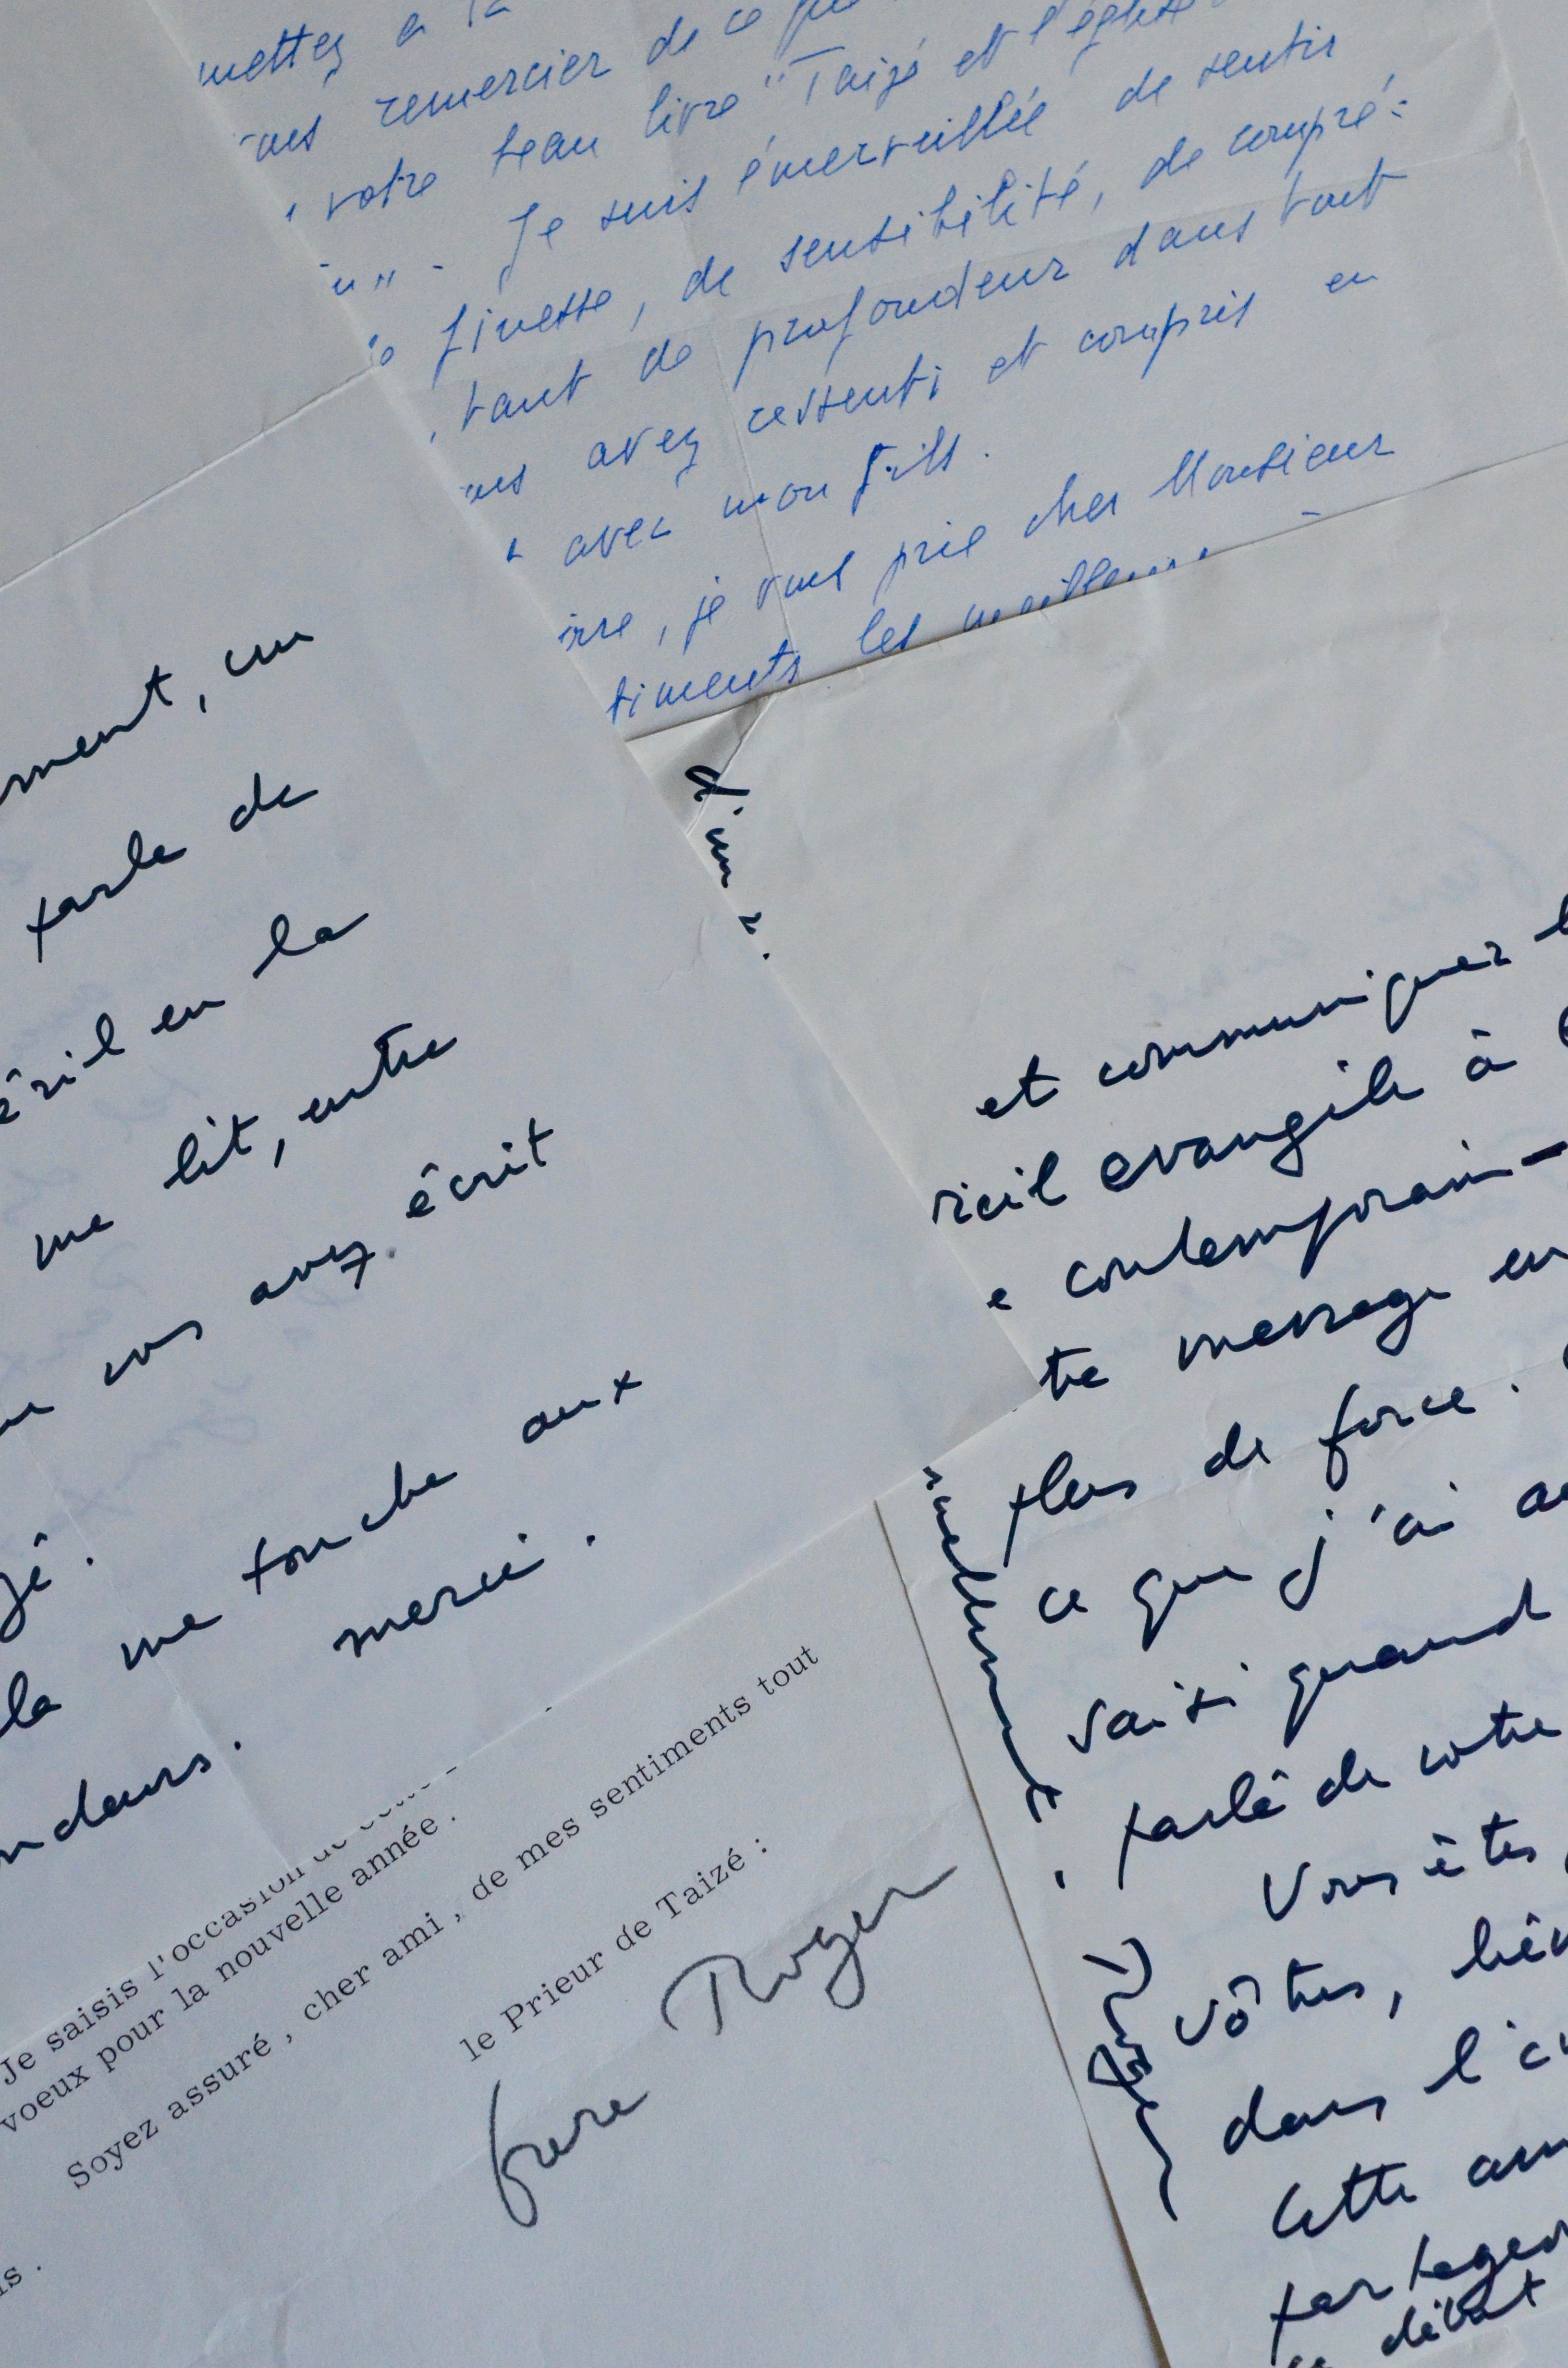 mettez à la
remercier de ce
votre beau livre "Taizé et l'église
Je suis émerveillée de sentir
finesse, de sensibilité, de compré-
tant de profondeur dans tout
avez ressenti et compris en
avec mon fils.
, je vous prie cher Monsieur
timents les meilleurs
ment, un
parle de
éril en la
me lit, entre
vous avez écrit
zé.
la me touche aux
ndeurs. merci.
Je saisis l'occasion de cette
voeux pour la nouvelle année.
Soyez assuré, cher ami, de mes sentiments tout
le Prieur de Taizé :
frere Roger
is.
et communiquez
evangile à
contemporain -
tre message en
plus de force.
ce que j'ai
saisi quand
parlé de votre
Vous êtes
vôtres,
dans l'
Cette
partager
début
Roger